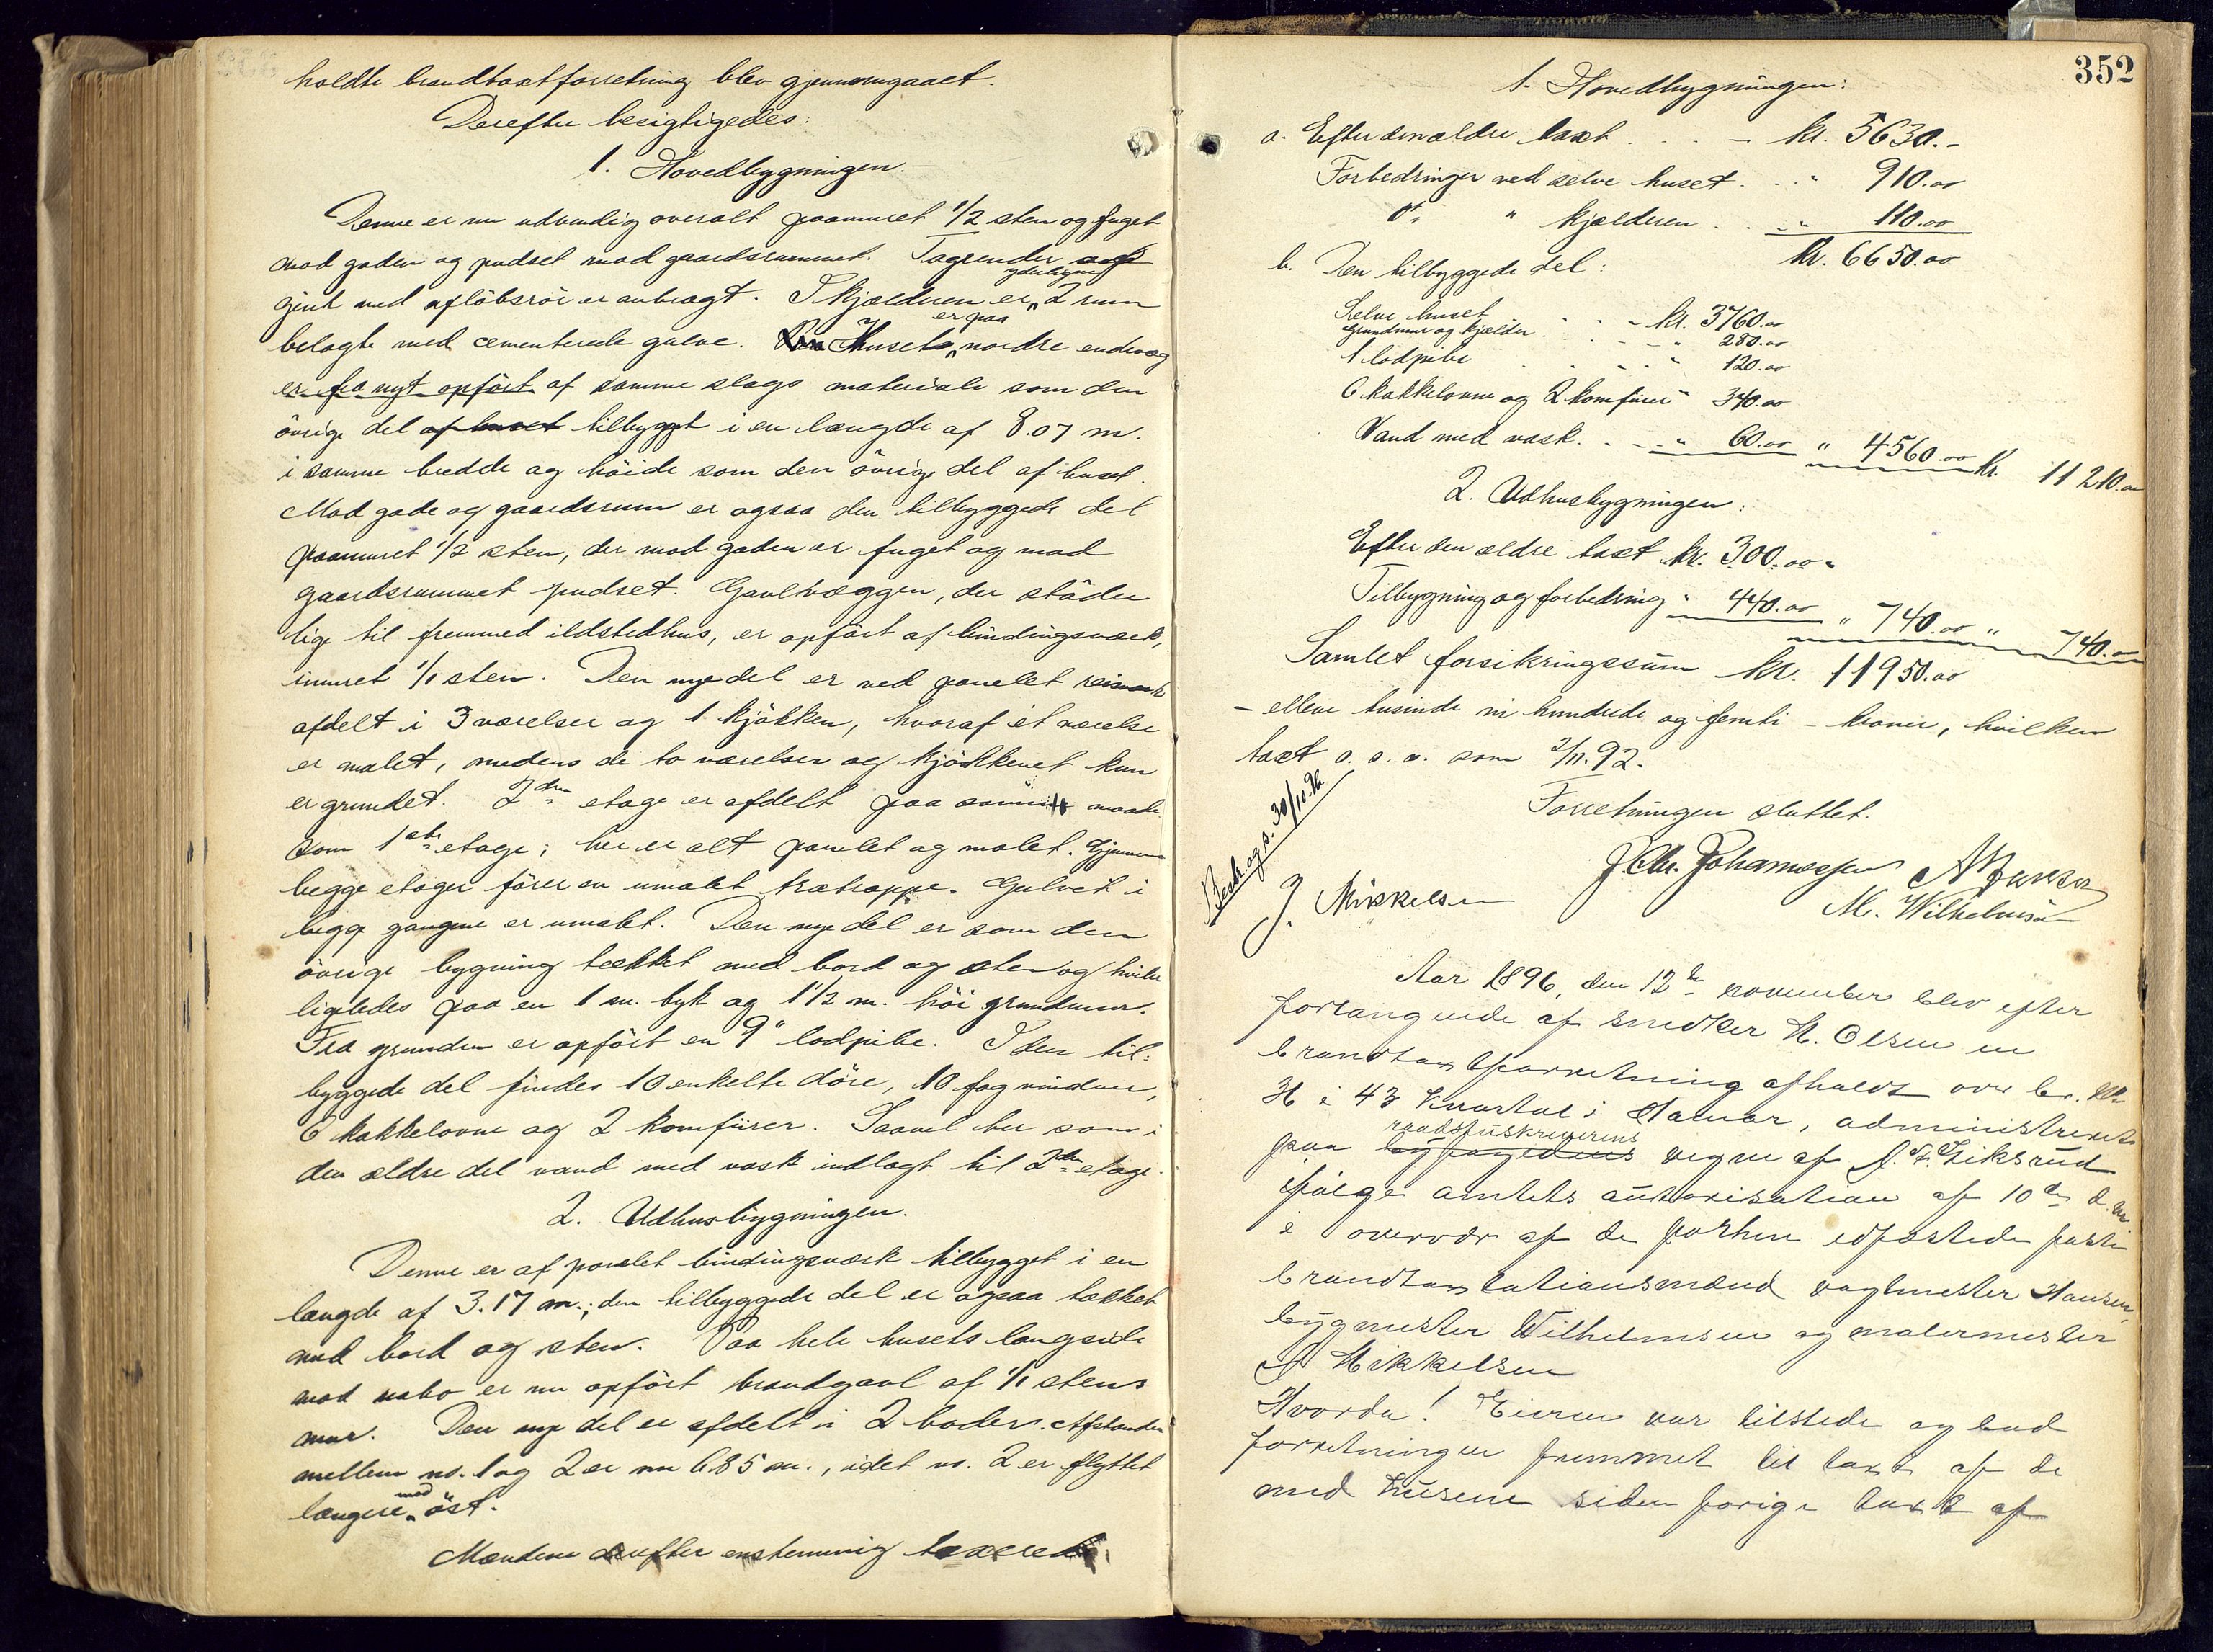 holdte brandtaxtforretning blev gjennemgaaet.
Derefter besigtigedes:
1. Hovedbygningen.
Denne er nu udvendig overalt paamuret 1/2 sten og fuget
mod gaden og pudset mod gaardsrummet. Tagrender
yderligere
gjent med afløbsrör er anbragt. I kjælderen er 2 rum
er paa
belagte med cementerede gulve. Husets nordre endevæg
er fra nyt opført af samme slags materiale som den
övrige del af huset tilbygget i en længde af 8.07 m.
i samme bredde og höide som den övrige del af huset.
Mod gade og gaardsrum er ogsaa den tilbyggede del
paamuret 1/2 sten, der mod gaden er fuget og mod
gaardsrummet pudset. Gavlvæggen, der støder
lige til fremmed ildstedhus, er opført af bindingsværk,
inmuret 1/1 sten. Den nye del er ved panelet reisværk
afdelt i 3 værelser og 1 kjökken, hvoraf et værelse
er malet, medens de to værelser og kjökkenet kun
er grundet. 2den etage er afdelt paa samme maade
som 1ste etage; her er alt panelet og malet. Gjennem
begge etager fører en umalet trætrappe. Gulvet i
begge gangene er umalet. Den nye del er som den
övrige bygning tækket med bord og sten og hviler
ligeledes paa en 1 m. tyk og 1 1/2 m. höi grundmur.
Fra grunden er opført en 9" lodpibe. I den til:
byggede del findes 10 enkelte döre, 10 fag vinduer,
6 kakkelovne og 2 komfürer. Saavel her som i
den ældre del vand med vask indlagt til 2den etage.
2. Udhusbygningen.
Denne er af panelet bindingsværk tilbygget i en
længde af 3.17 m.; den tilbyggede del er ogsaa tækket
med bord og sten. Paa hele husets langside
mod nabo er nu opført brandgavl af 1/1 stens
mur. Den nye del er afdelt i 2 boder. Afstanden
mellem no. 1 og 2 er nu 6.85 m., idet no. 2 er flyttet
mod
længere öst.
Mændene derefter enstemmig taxerede:
352
1. Hovedbygningen:
a. Efter den ældre taxt . . . - kr. 5630.-
Forbedringer ved selve huset. . . " 910.00
do " kjælderen . . " 110.00
kr. 6650.00
b. Den tilbyggede del:
Selve huset . . - kr. 3760.00
Grundmur og kjælder . . . - " 280.00
1 lodpibe . . . . " 120.00
6 kakkelovne og 2 komfürer " 340.00
Vand med vask. . - " 60.00 " 4560.00 kr. 11210.00
2. Udhusbygningen:
Efter den ældre taxt kr. 300.00
Tilbygning og forbedring " 440.00 " 740.00 " 740.-
Samlet forsikringssum kr. 11950.00
- elleve tusinde ni hundrede og femti - kroner, hvilken
taxt o. s. v. som 2/11.92.
Forretningen sluttet.
Beskr. og s. 30/10.96.
J. Chr. Johannessen
J. Mikkelsen M. Wilhelmsen
Aar 1896, den 12te november blev efter
forlangende af snedker H. Olsen en
brandtaxtforretning afholdt over br. No
36 i 43 kvartal i Hamar, administreret
raadstuskriverens
paa byfogedens vegne af
ifølge amtets autorisation af 10de d. m.
i overvær af de forhen edfæstede faste
brandtaxtationsmænd vagtmester Hansen,
bygmester Wilhelmsen og malermester
J Mikkelsen
Hvorda! Eieren var tilstede og bad
forretningen fremmet til taxt af de
med husene siden forige taxt af